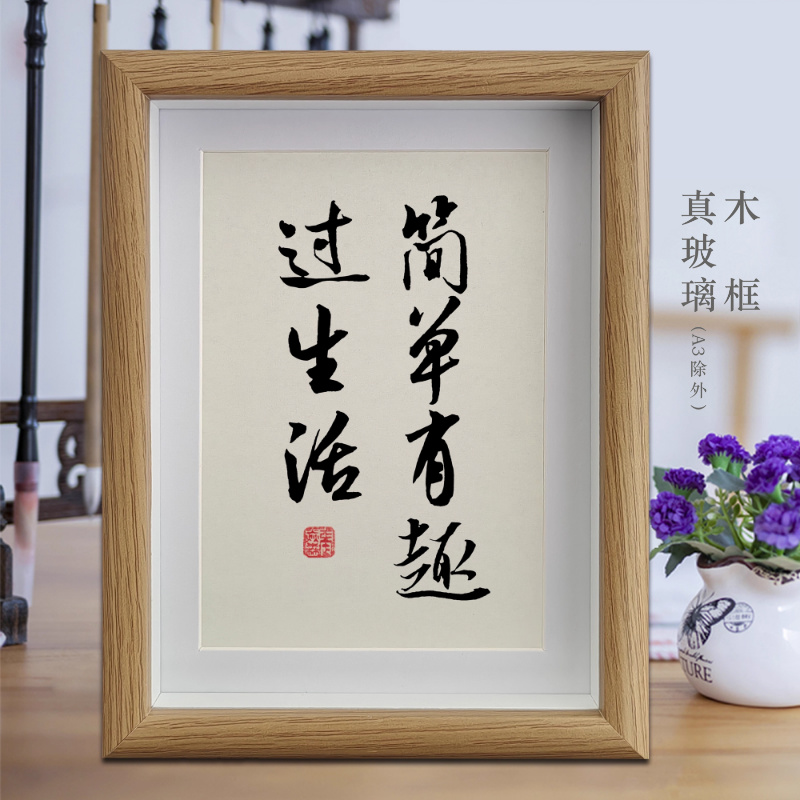 简单有趣
过生活
木框
真玻璃(A3除外)